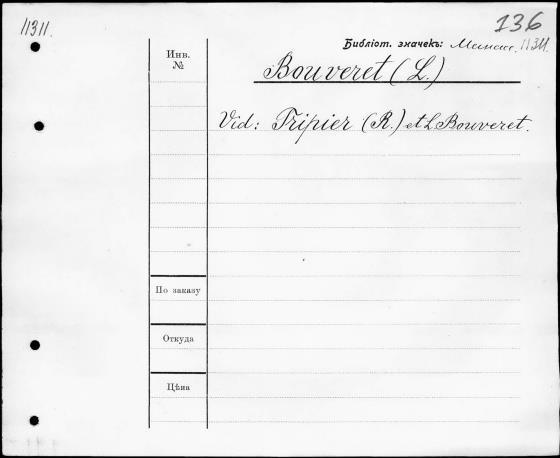 11311.
136
Библіот. значекъ: 11311.
Инв. №
Bouveret (L.)
Vid: Tripier (R.) et L. Bouveret.
По заказу
Откуда
Цѣна